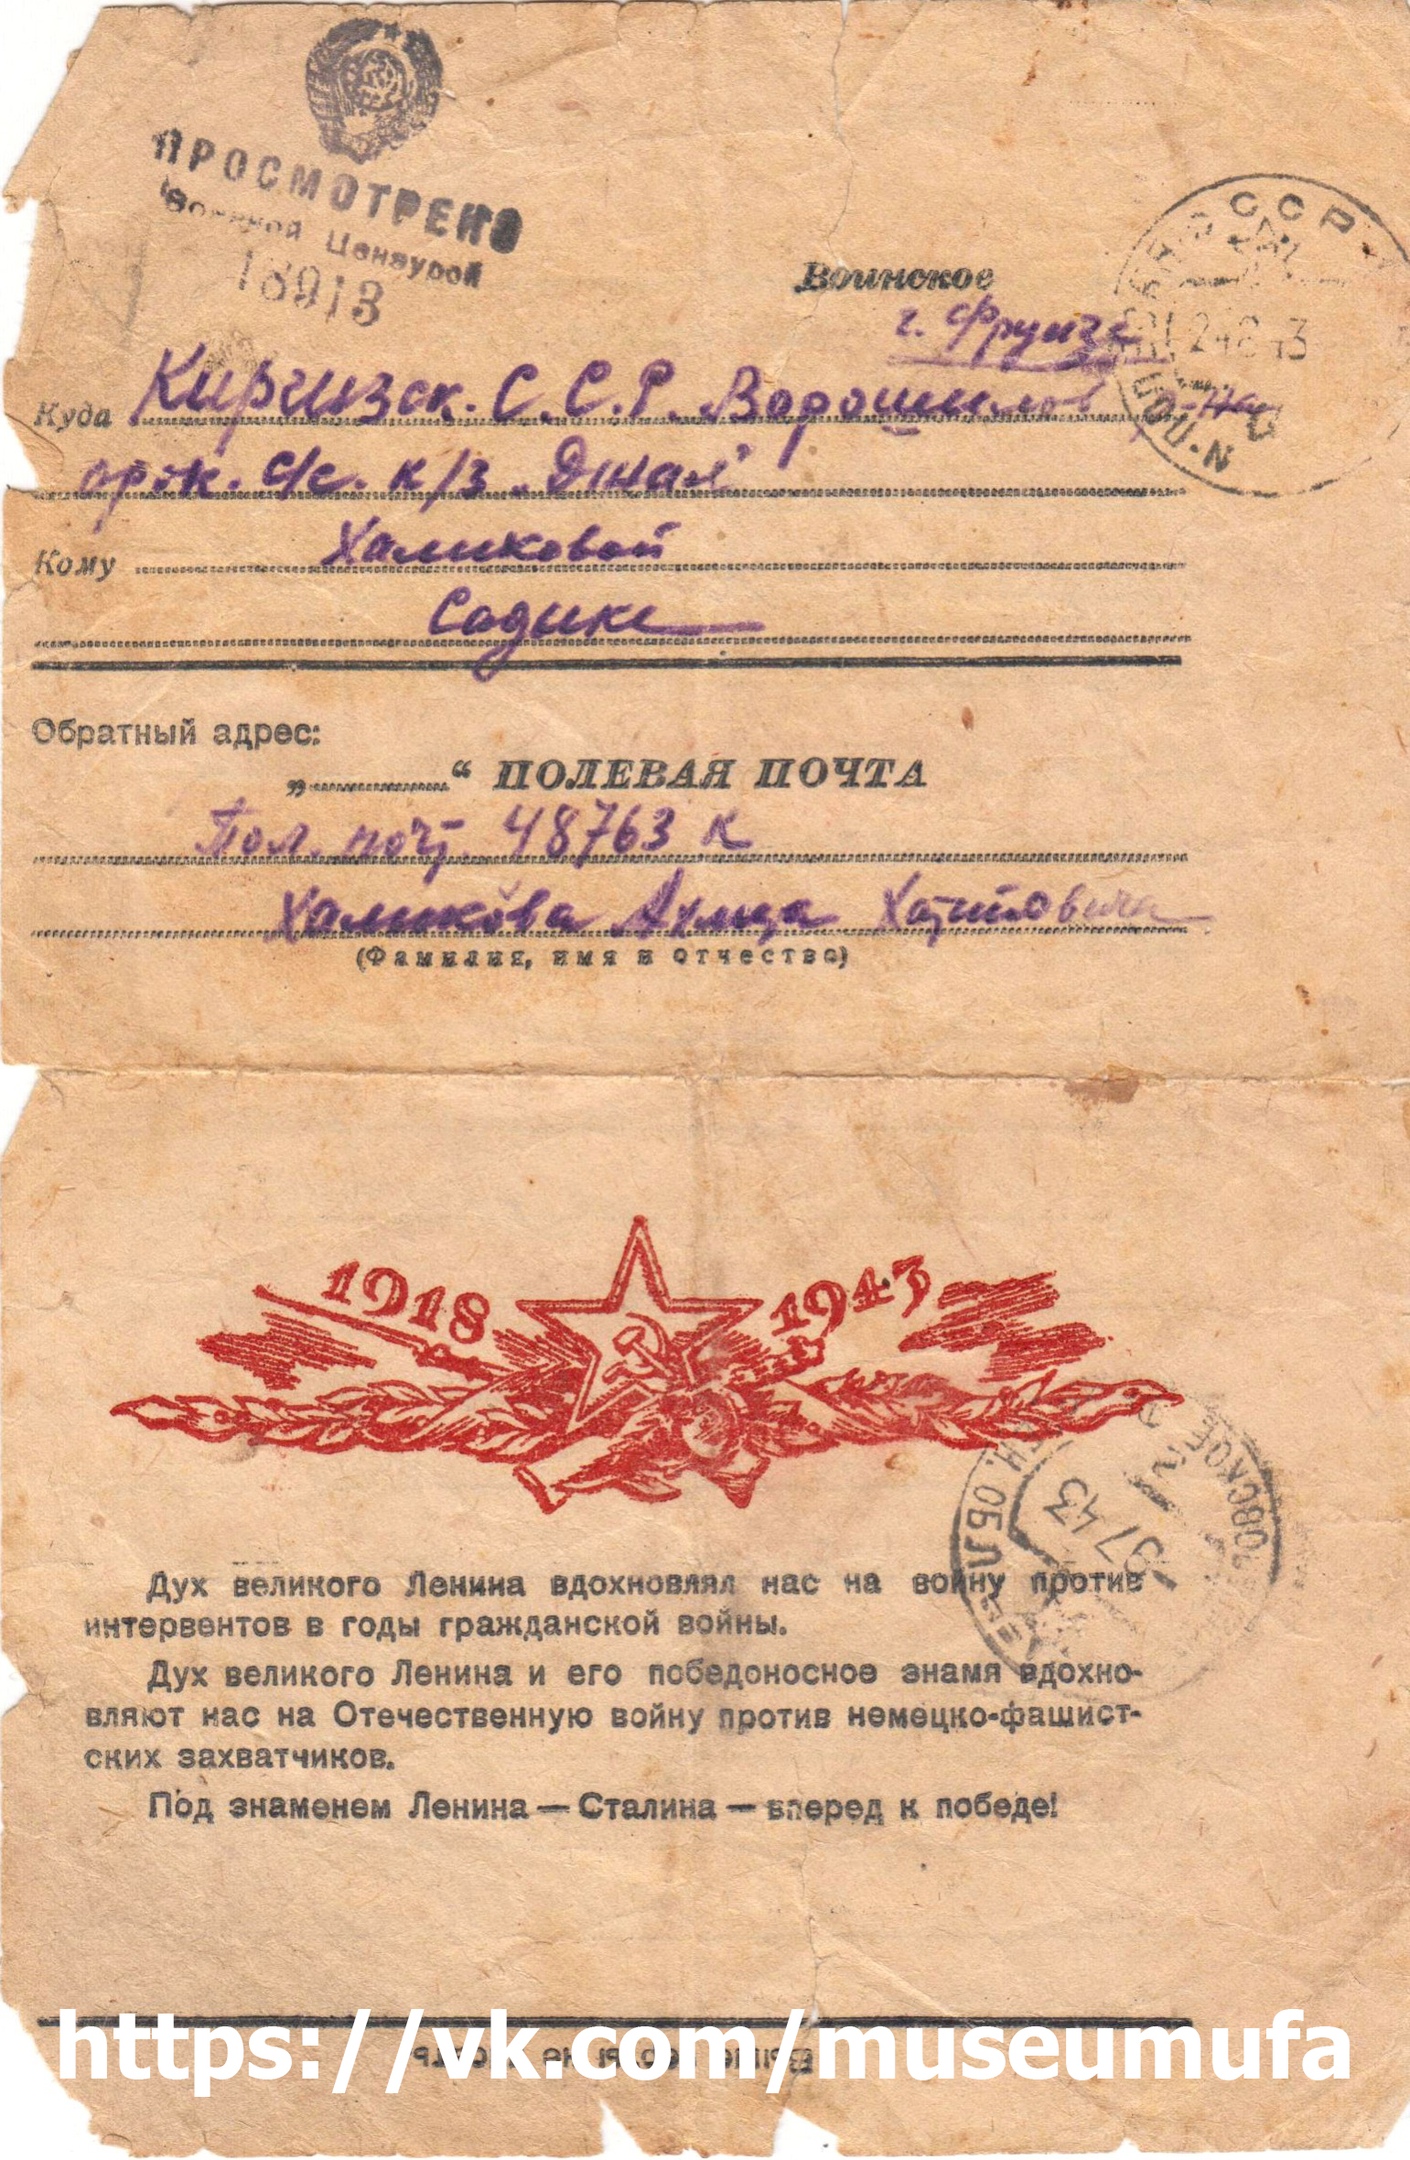 ПРОСМОТРЕНО
Военной Цензурой
18913
Воинское
г. Фрунзе
Куда Киргизск. С.С.Р. Ворошилов р-на
с/с. к/з
Кому Халиковой
Садике
Обратный адрес:
„ “ ПОЛЕВАЯ ПОЧТА
Пол. почт. 48763 К
Халикова
(Фамилия, имя и отчество)
1918 1943
Дух великого Ленина вдохновлял нас на войну против
интервентов в годы гражданской войны.
Дух великого Ленина и его победоносное знамя вдохно-
вляют нас на Отечественную войну против немецко-фашист-
ских захватчиков.
Под знаменем Ленина — Сталина — вперед к победе!
https://vk.com/museumufa